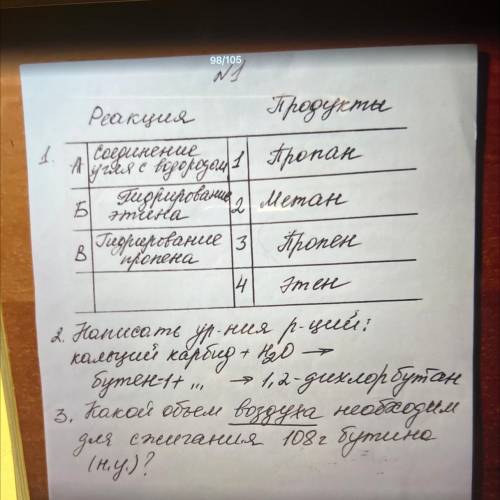 98/105
№1
Реакция Продукты
1. А Соединение угля с водородом 1 Пропан
Б Гидрирование этина 2 Метан
В Гидрирование пропена 3 Пропен
4 Этен
2. Написать ур-ния р-ций:
кальций карбид + H2O →
бутен-1 + ,,, → 1,2-дихлорбутан
3. Какой объем воздуха необходим
для сжигания 108г бутина
(н.у.)?